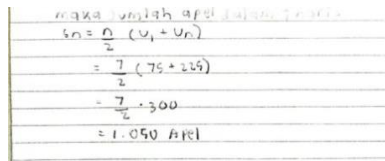 maka jumlah apel dalam 7 hari
Sn = n/2 (U1 + Un)
= 7/2 (75 + 225)
= 7/2 . 300
= 1.050 Apel